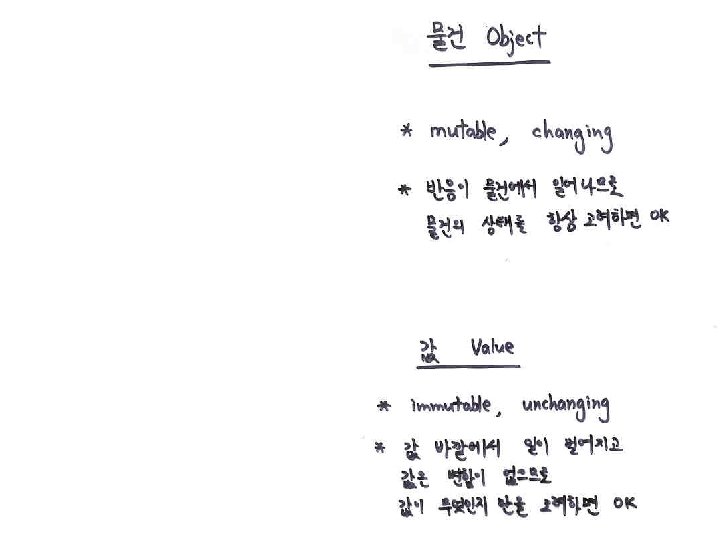 물건 Object
* mutable, changing
* 반응이 물건에서 일어나므로
물건의 상태를 항상 고려하면 OK
값 Value
* immutable, unchanging
* 값 바깥에서 일이 벌어지고
값은 변함이 없으므로
값이 무엇인지 만을 고려하면 OK